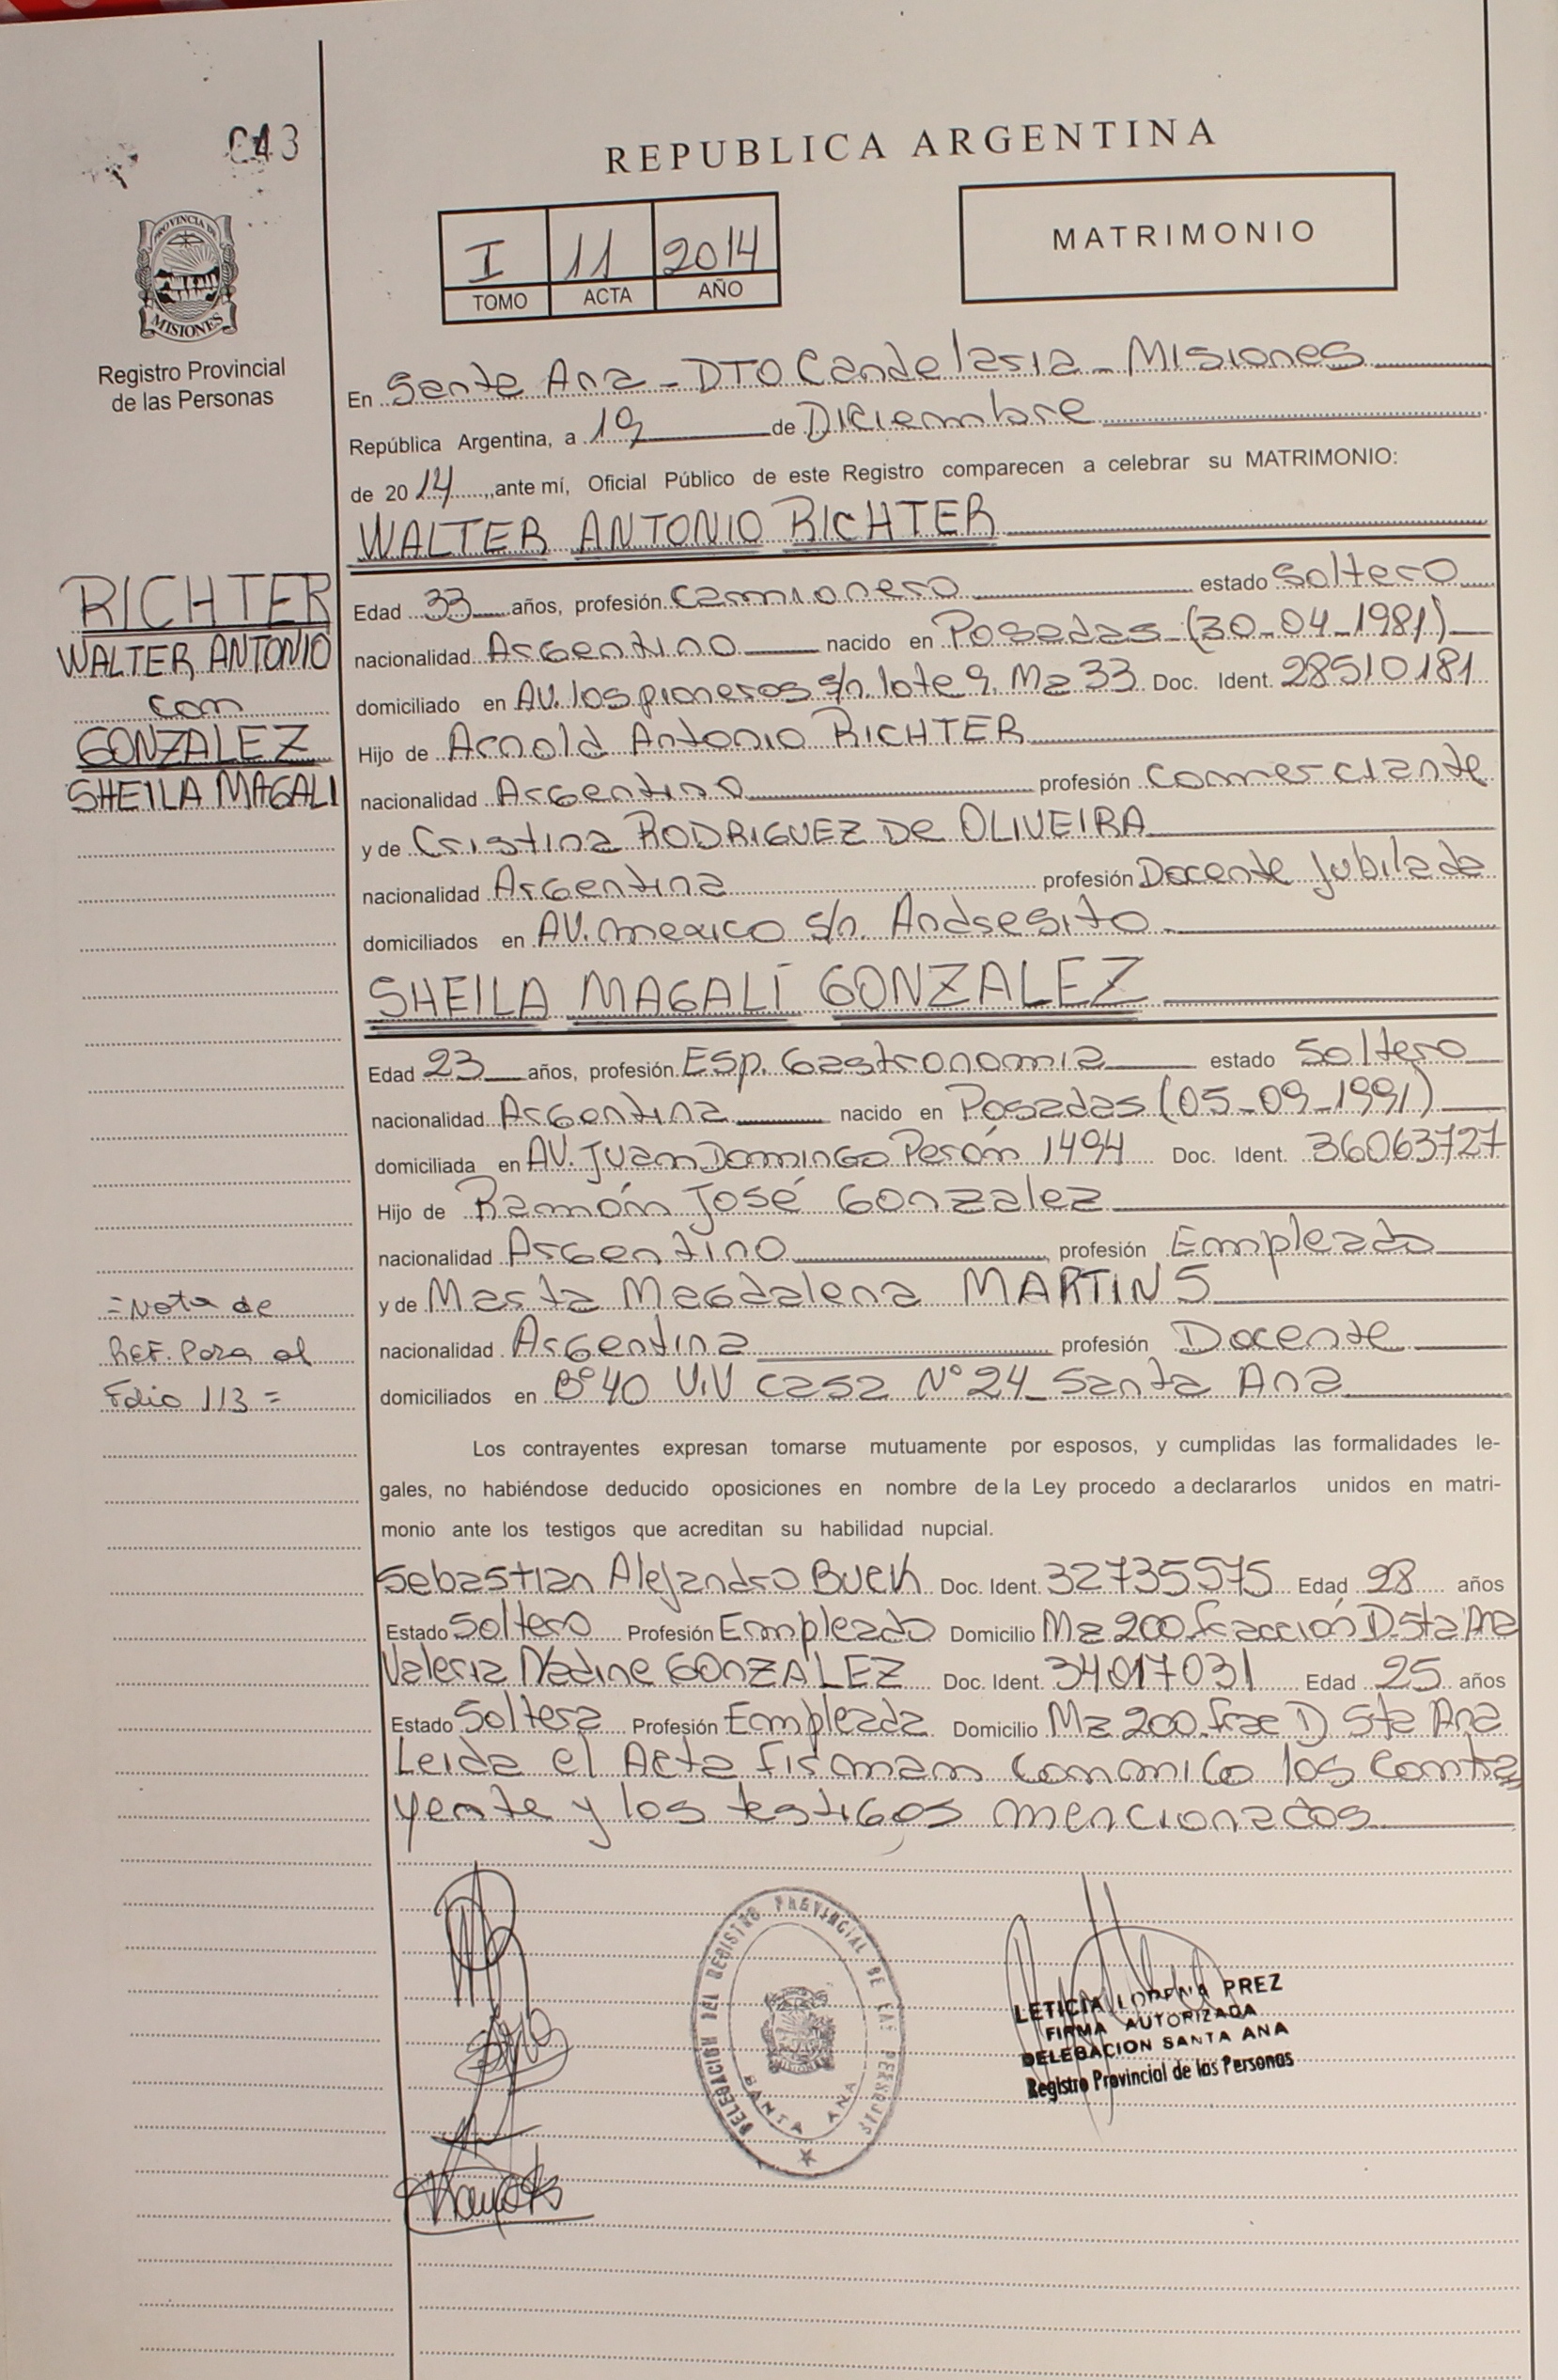 C13
REPUBLICA ARGENTINA
MATRIMONIO
I 11 2014
TOMO ACTA AÑO
PROVINCIA DE
MISIONES
Registro Provincial
de las Personas
En Santa Ana - DTO Candelaria - Misiones
República Argentina, a 19 de Diciembre
de 2014, ante mí, Oficial Público de este Registro comparecen a celebrar su MATRIMONIO:
WALTER ANTONIO RICHTER
RICHTER
WALTER ANTONIO
con
GONZALEZ
SHEILA MAGALI
Edad 33 años, profesión camionero estado Soltero
nacionalidad Argentino nacido en Posadas (30-04-1981)
domiciliado en AV. los pioneros s/n. lote 9. Mz 33 Doc. Ident. 28510181
Hijo de Arnold Antonio RICHTER
nacionalidad Argentino profesión Comerciante
y de Cristina RODRIGUEZ DE OLIVEIRA
nacionalidad Argentina profesión Docente Jubilada
domiciliados en AV. mexico s/n. Andresito
SHEILA MAGALÍ GONZALEZ
Edad 23 años, profesión Esp. Gastronomia estado Soltero
nacionalidad Argentina nacido en Posadas (05-09-1991)
domiciliada en AV. Juan Domingo Perón 1494 Doc. Ident. 36063727
Hijo de Ramón José Gonzalez
nacionalidad Argentino profesión Empleado
y de Marta Magdalena MARTINS
nacionalidad Argentina profesión Docente
domiciliados en Bº 40 ViV casa Nº 24 Santa Ana
=Nota de
REF. Para al
Folio 113=
Los contrayentes expresan tomarse mutuamente por esposos, y cumplidas las formalidades le-
gales, no habiéndose deducido oposiciones en nombre de la Ley procedo a declararlos unidos en matri-
monio ante los testigos que acreditan su habilidad nupcial.
Sebastian Alejandro BUCK Doc. Ident. 32735575 Edad 28 años
Estado Soltero Profesión Empleado Domicilio Mz 200 fracción D. Sta Ana
Valeria Nadine GONZALEZ Doc. Ident. 34017031 Edad 25 años
Estado Soltera Profesión Empleada Domicilio Mz 200 frac D Sta Ana
Leida el Acta firman conmigo los contra
yente y los testigos mencionados
DELEGACION DEL REGISTRO PROVINCIAL DE LAS PERSONAS
SANTA ANA
LETICIA LORENA PREZ
FIRMA AUTORIZADA
DELEGACION SANTA ANA
Registro Provincial de las Personas